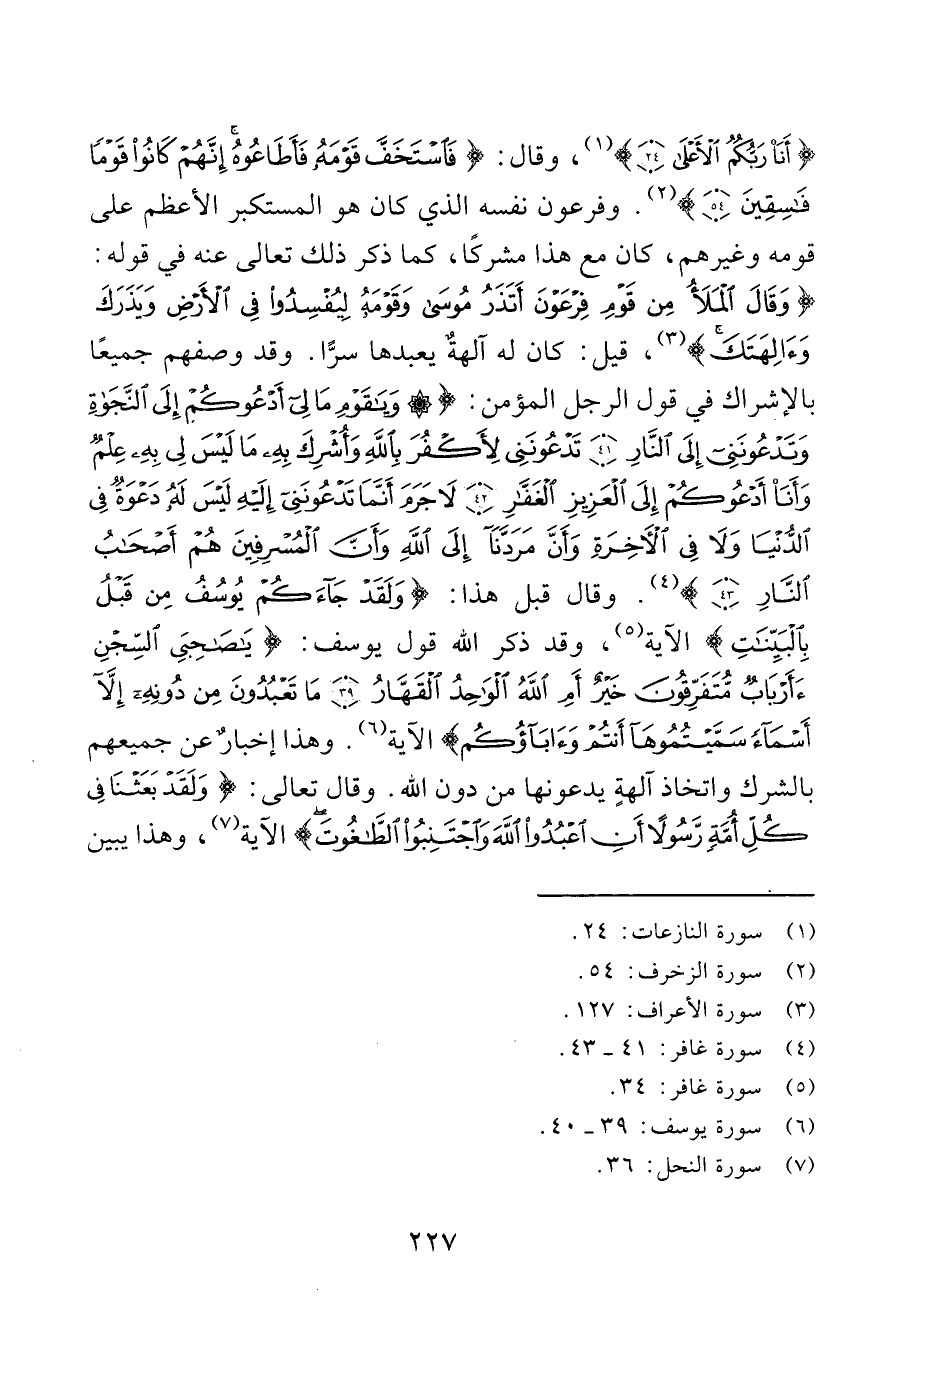 ﴿ أَنَا۠ رَبُّكُمُ ٱلْأَعْلَىٰ ﴿٢٤﴾ ﴾(١)، وقال: ﴿ فَٱسْتَخَفَّ قَوْمَهُۥ فَأَطَاعُوهُ ۚ إِنَّهُمْ كَانُوا۟ قَوْمًا
فَـٰسِقِينَ ﴿٥٤﴾ ﴾(٢). وفرعون نفسه الذي كان هو المستكبر الأعظم على
قومه وغيرهم، كان مع هذا مشركًا، كما ذكر ذلك تعالى عنه في قوله:
﴿ وَقَالَ ٱلْمَلَأُ مِن قَوْمِ فِرْعَوْنَ أَتَذَرُ مُوسَىٰ وَقَوْمَهُۥ لِيُفْسِدُوا۟ فِى ٱلْأَرْضِ وَيَذَرَكَ
وَءَالِهَتَكَ ۚ ﴾(٣)، قيل: كان له آلهةٌ يعبدها سرًّا. وقد وصفهم جميعًا
بالإشراك في قول الرجل المؤمن: ﴿ ۞ وَيَـٰقَوْمِ مَا لِىٓ أَدْعُوكُمْ إِلَى ٱلنَّجَوٰةِ
وَتَدْعُونَنِىٓ إِلَى ٱلنَّارِ ﴿٤١﴾ تَدْعُونَنِى لِأَكْفُرَ بِٱللَّهِ وَأُشْرِكَ بِهِۦ مَا لَيْسَ لِى بِهِۦ عِلْمٌ
وَأَنَا۠ أَدْعُوكُمْ إِلَى ٱلْعَزِيزِ ٱلْغَفَّـٰرِ ﴿٤٢﴾ لَا جَرَمَ أَنَّمَا تَدْعُونَنِىٓ إِلَيْهِ لَيْسَ لَهُۥ دَعْوَةٌ فِى
ٱلدُّنْيَا وَلَا فِى ٱلْـَٔاخِرَةِ وَأَنَّ مَرَدَّنَآ إِلَى ٱللَّهِ وَأَنَّ ٱلْمُسْرِفِينَ هُمْ أَصْحَـٰبُ
ٱلنَّارِ ﴿٤٣﴾ ﴾(٤). وقال قبل هذا: ﴿ وَلَقَدْ جَآءَكُمْ يُوسُفُ مِن قَبْلُ
بِٱلْبَيِّنَـٰتِ ﴾ الآية(٥)، وقد ذكر الله قول يوسف: ﴿ يَـٰصَـٰحِبَىِ ٱلسِّجْنِ
ءَأَرْبَابٌ مُّتَفَرِّقُونَ خَيْرٌ أَمِ ٱللَّهُ ٱلْوَٰحِدُ ٱلْقَهَّارُ ﴿٣٩﴾ مَا تَعْبُدُونَ مِن دُونِهِۦٓ إِلَّآ
أَسْمَآءً سَمَّيْتُمُوهَآ أَنتُمْ وَءَابَآؤُكُم ﴾ الآية(٦). وهذا إخبارٌ عن جميعهم
بالشرك واتخاذ آلهةٍ يدعونها من دون الله. وقال تعالى: ﴿ وَلَقَدْ بَعَثْنَا فِى
كُلِّ أُمَّةٍ رَّسُولًا أَنِ ٱعْبُدُوا۟ ٱللَّهَ وَٱجْتَنِبُوا۟ ٱلطَّـٰغُوتَ ۖ ﴾ الآية(٧)، وهذا يبين
(١) سورة النازعات: ٢٤.
(٢) سورة الزخرف: ٥٤.
(٣) سورة الأعراف: ١٢٧.
(٤) سورة غافر: ٤١ ـ ٤٣.
(٥) سورة غافر: ٣٤.
(٦) سورة يوسف: ٣٩ ـ ٤٠.
(٧) سورة النحل: ٣٦.
٢٢٧